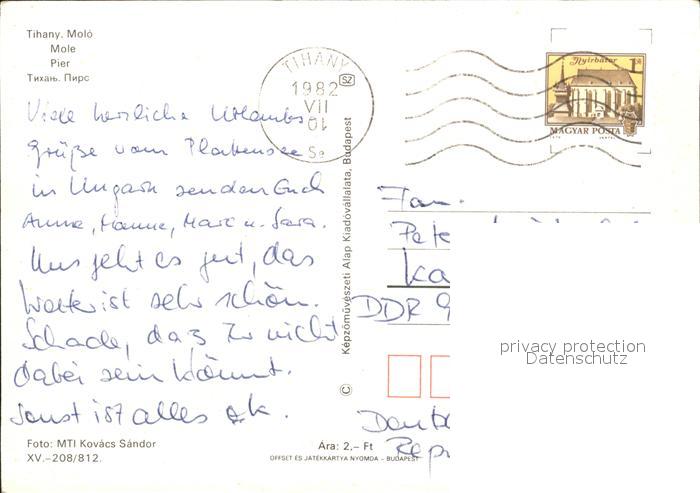 Tihany. Moló
Mole
Pier
Тихань. Пирс
Viele herzliche Urlaubs
grüße vom Plattensee
in Ungarn senden Euch
Anna, Hanne, Marc u. Sara.
Uns geht es gut, das
Wetter ist sehr schön.
Schade, daß Ihr nicht
dabei sein könnt.
Sonst ist alles ok.
Foto: MTI Kovács Sándor
XV.–208/812.
Ára: 2,– Ft
OFFSET ÉS JÁTÉKKÁRTYA NYOMDA – BUDAPEST
© Képzőművészeti Alap Kiadóvállalata, Budapest
TIHANY
SZ
1982
VII
01
Nyírbátor
1 Ft
MAGYAR POSTA
Fam.
Pete
Ka
DDR 9
privacy protection
Datenschutz
Deut
Rep